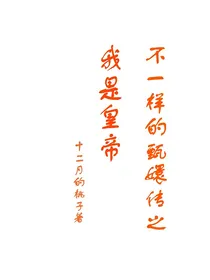 不一样的甄嬛传之
我是皇帝
十二月的桃子著